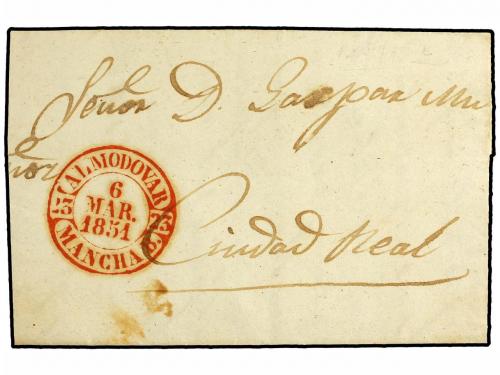 Señor D. Gaspar Mu
ñoz
Ciudad Real
ALMODOVAR
6
MAR.
1851
MANCHA